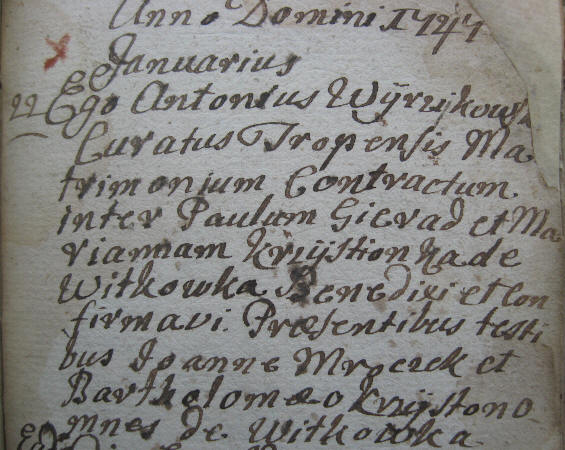 Anno Domini 1747
Januarius
22 Ego Antonius Wyrzykowsk
Curatus Tropensis Ma
trimonium Contractum
inter Paulum Gierad et Ma
riannam Krzystion ka de
Witkowka Benedixi et Con
firmavi. Præsentibus testi
bus Joanne Mroczek et
Bartholomæo Krzyston o
mnes de Witkowka